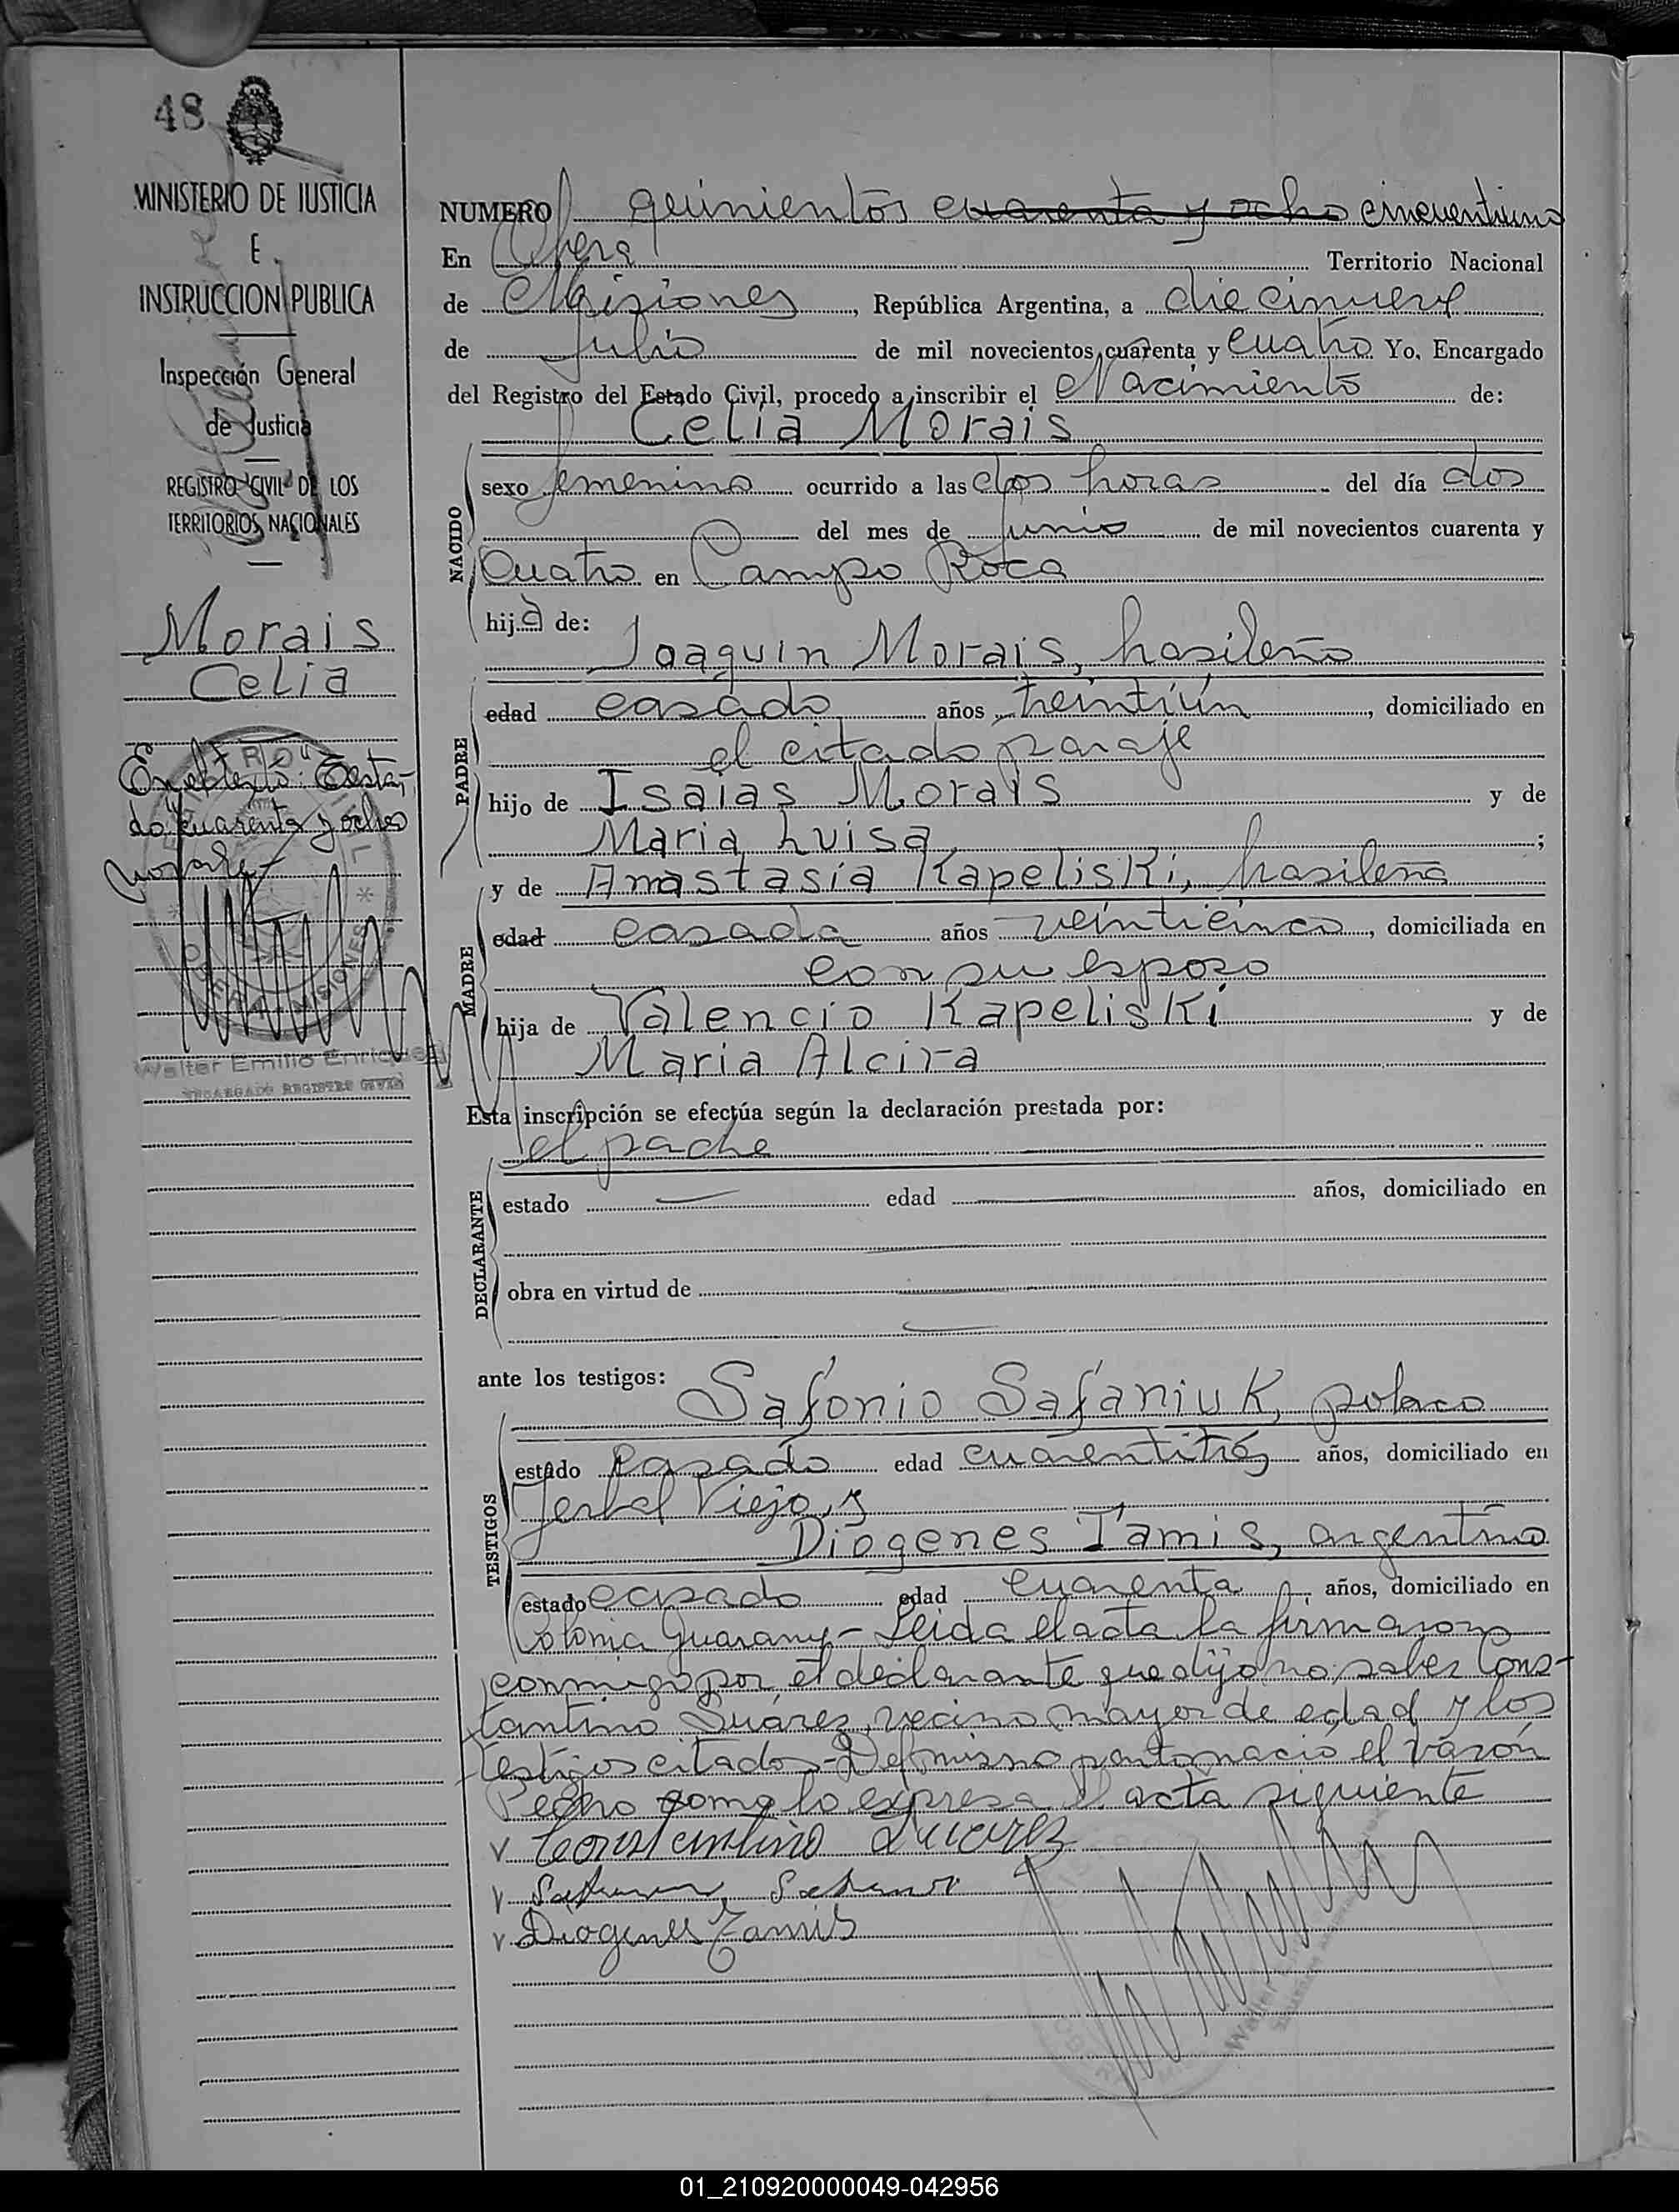 48
MINISTERIO DE JUSTICIA
E
INSTRUCCION PUBLICA
Inspección General
de Justicia
REGISTRO CIVIL DE LOS
TERRITORIOS NACIONALES
Morais
Celia
En el texto: Testa-
do cuarenta y ocho
no vale-
Walter Emilio Enriquez
ENCARGADO REGISTRO CIVIL
NUMERO quinientos cuarenta y ocho cincuentiuno
En Obera Territorio Nacional
de Misiones, República Argentina, a diecinueve
de Julio de mil novecientos cuarenta y cuatro Yo, Encargado
del Registro del Estado Civil, procedo a inscribir el Nacimiento de:
Celia Morais
NACIDO
sexo femenino ocurrido a las dos horas del día dos
del mes de Junio de mil novecientos cuarenta y
Cuatro en Campo Roca
hija de:
Joaquin Morais, brasileño
PADRE
edad casado años treintiún, domiciliado en
el citado paraje
hijo de Isaias Morais y de
Maria Luisa;
MADRE
y de Anastasia Kapeliski, brasileña
edad casada años veinticinco, domiciliada en
con su esposo
hija de Valencio Kapeliski y de
Maria Alcira
Esta inscripción se efectúa según la declaración prestada por:
el padre
DECLARANTE
estado edad años, domiciliado en
obra en virtud de
ante los testigos:
Safonio Safaniuk, polaco
TESTIGOS
estado casado edad cuarentitrés años, domiciliado en
Yerbal Viejo, y
Diógenes Tamis, argentino
estado casado edad cuarenta años, domiciliado en
Colonia Guarany - Leida el acta la firmaron
conmigo por el declarante que dijo no saber Cons-
tantino Suárez, vecino mayor de edad y los
testigos citados - Del mismo parto nació el varón
Pedro como lo expresa el acta siguiente
Constantino Suarez
Diogenes Tamis
01_210920000049-042956